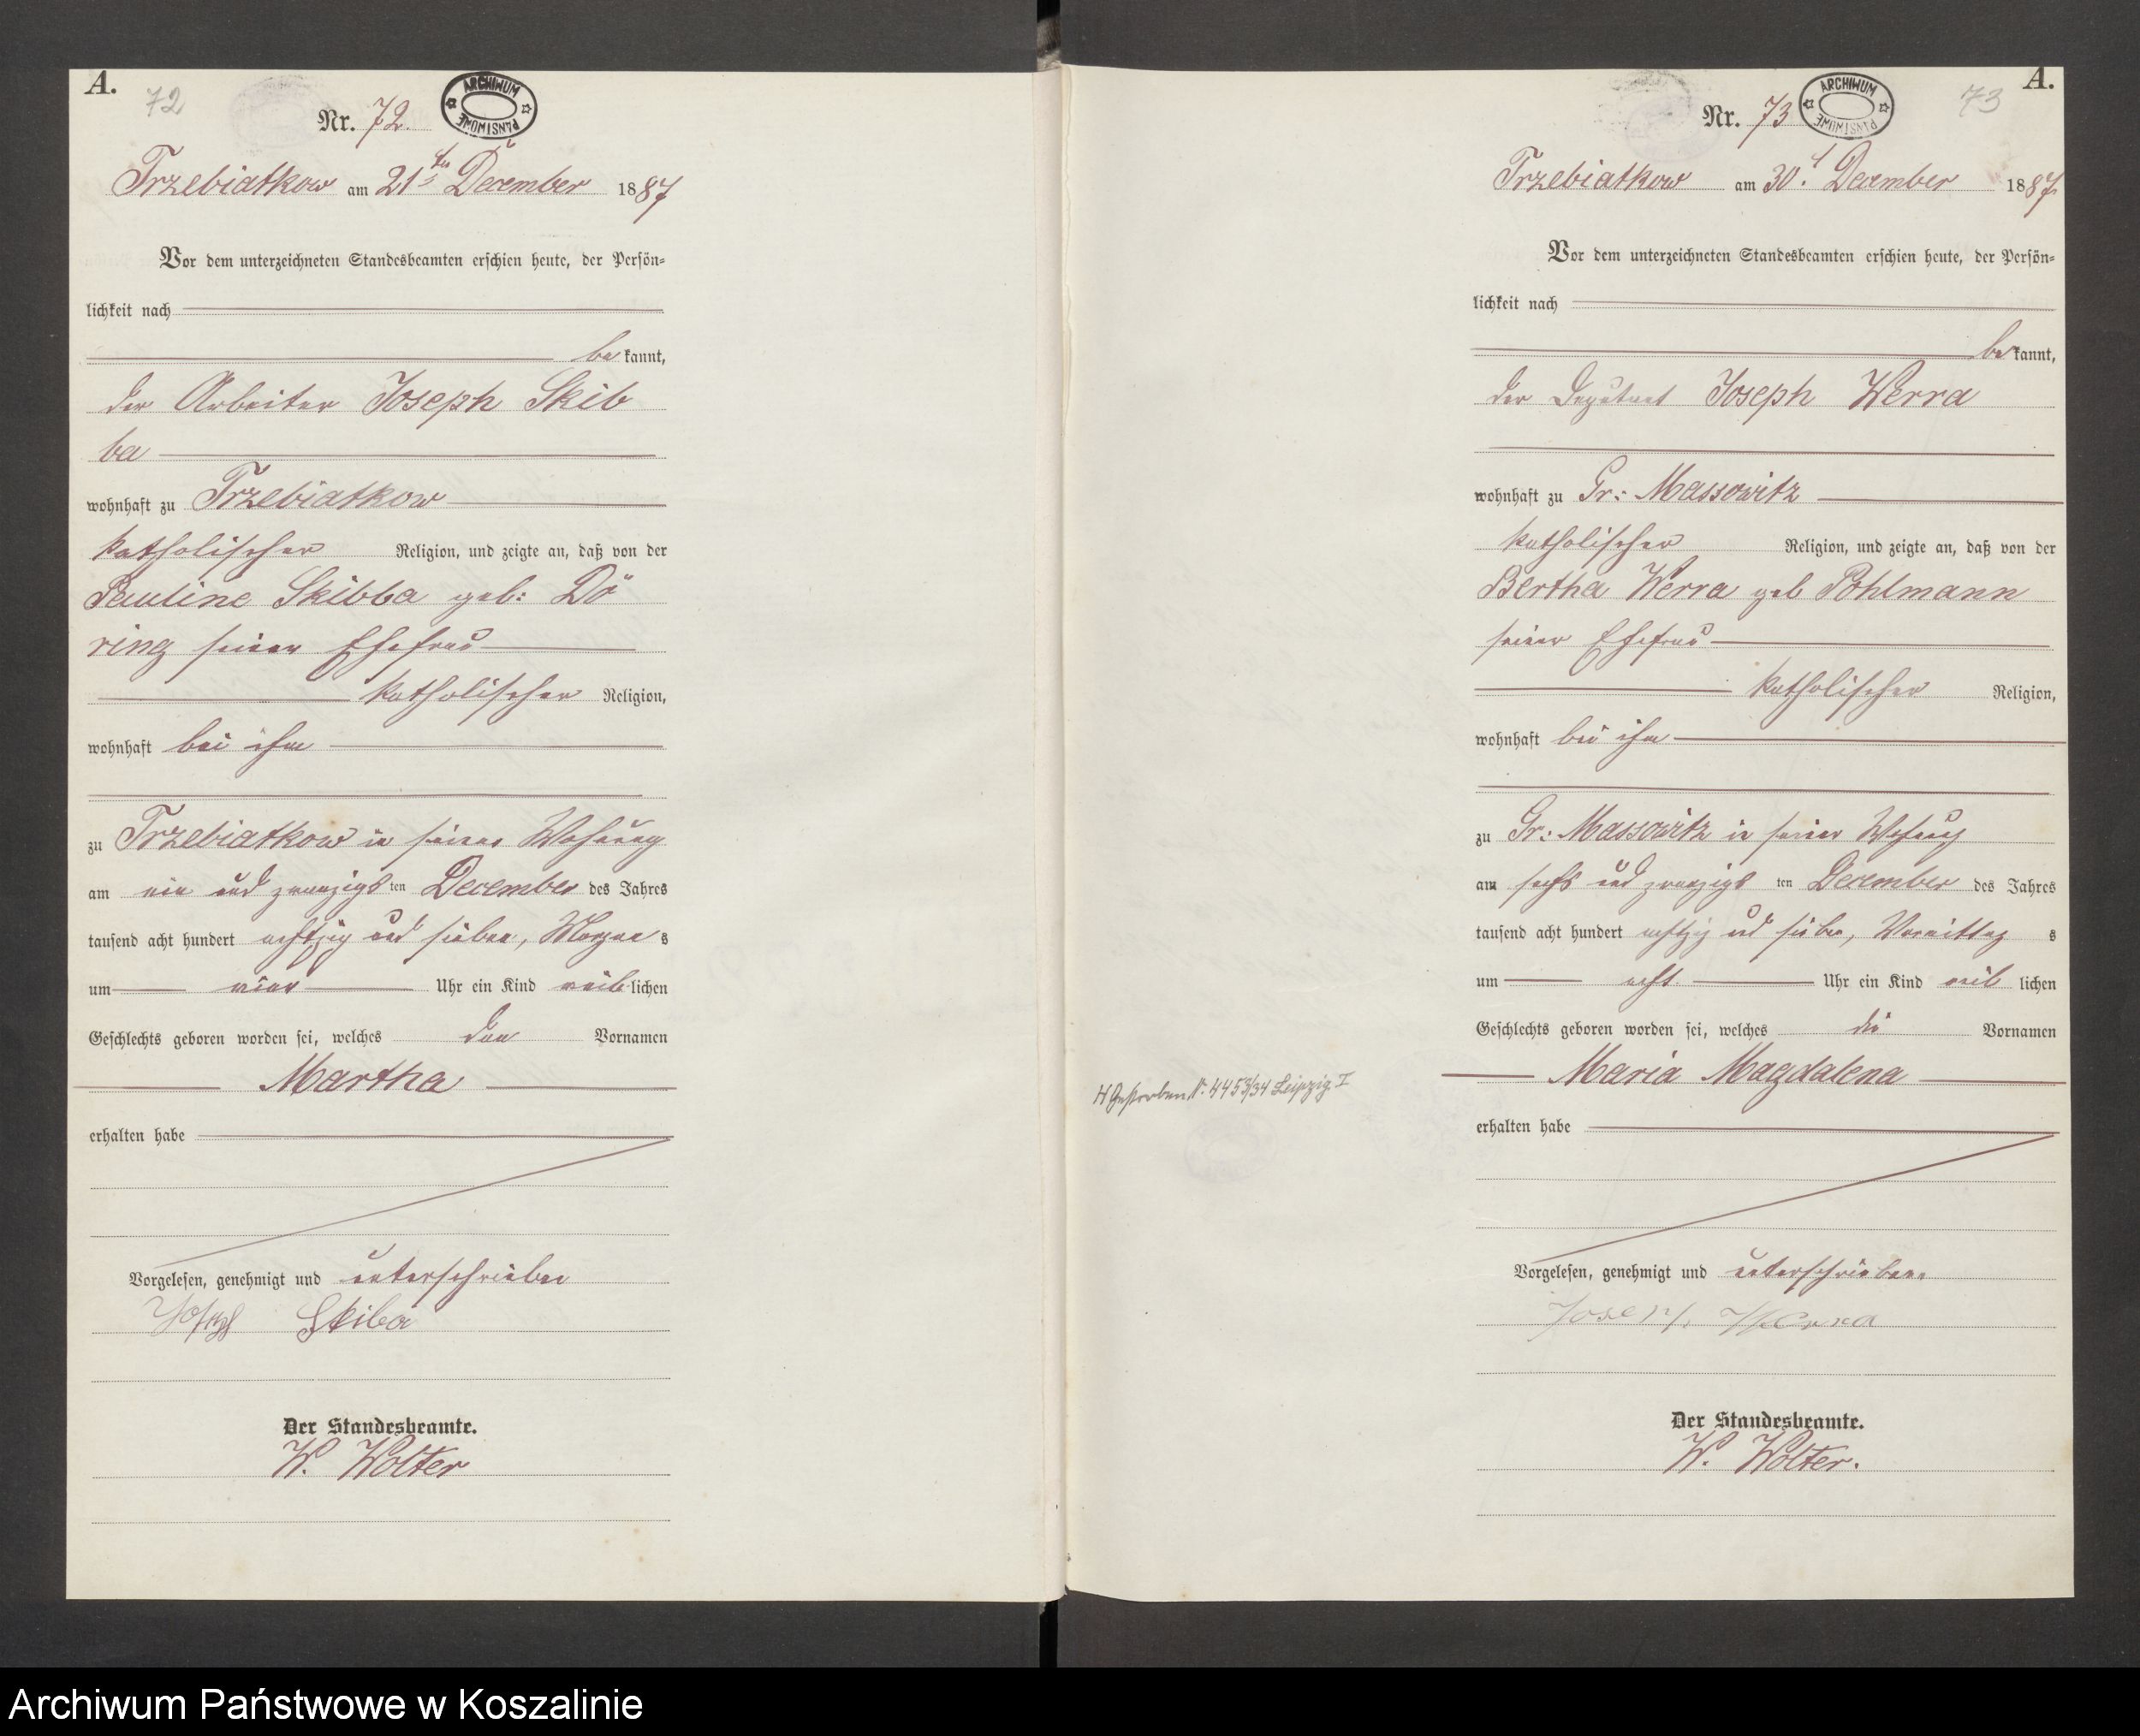 A.
72
Nr. 72.
ARCHIWUM PAŃSTWOWE
Trzebiatkow am 21ten December 1887
Vor dem unterzeichneten Standesbeamten erschien heute, der Persön-
lichkeit nach
bekannt,
der Arbeiter Joseph Skib
ba
wohnhaft zu Trzebiatkow
katholischer Religion, und zeigte an, daß von der
Pauline Skibba geb: Dö
ring seiner Ehefrau
katholischer Religion,
wohnhaft bei ihm
zu Trzebiatkow in seiner Wohnung
am ein und zwanzigsten December des Jahres
tausend acht hundert achtzig und sieben, Morgens
um vier Uhr ein Kind weiblichen
Geschlechts geboren worden sei, welches den Vornamen
Martha
erhalten habe
Vorgelesen, genehmigt und unterschrieben
Joseph Skiba
Der Standesbeamte.
W. Wolter
A.
73
Nr. 73
ARCHIWUM PAŃSTWOWE
Trzebiatkow am 30t December 1887
Vor dem unterzeichneten Standesbeamten erschien heute, der Persön-
lichkeit nach
bekannt,
der Deputant Joseph Werra
wohnhaft zu Gr: Massowitz
katholischer Religion, und zeigte an, daß von der
Bertha Werra geb Pohlmann
seiner Ehefrau
katholischer Religion,
wohnhaft bei ihm
zu Gr: Massowitz in seiner Wohnung
am sechs und zwanzigsten December des Jahres
tausend acht hundert achtzig und sieben, Vormittags
um acht Uhr ein Kind weiblichen
Geschlechts geboren worden sei, welches die Vornamen
Maria Magdalena
erhalten habe
Gestorben Nr. 4453/34 Leipzig I
Vorgelesen, genehmigt und unterschrieben
Joseph Werra
Der Standesbeamte.
W. Wolter.
Archiwum Państwowe w Koszalinie